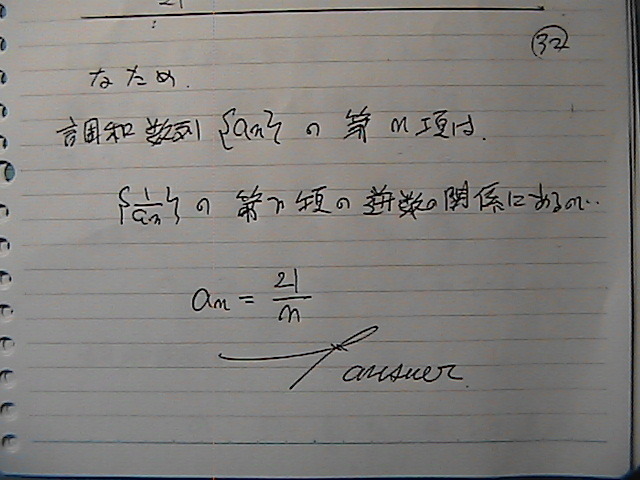 21
㉜
なため.
調和数列 {an} の 第 n 項は.
{1/an} の 第 n 項の 逆数の関係にあるの..
an = 21/n
answer